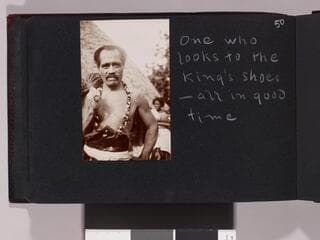 50
One who
looks to the
King's shoes
— all in good
time